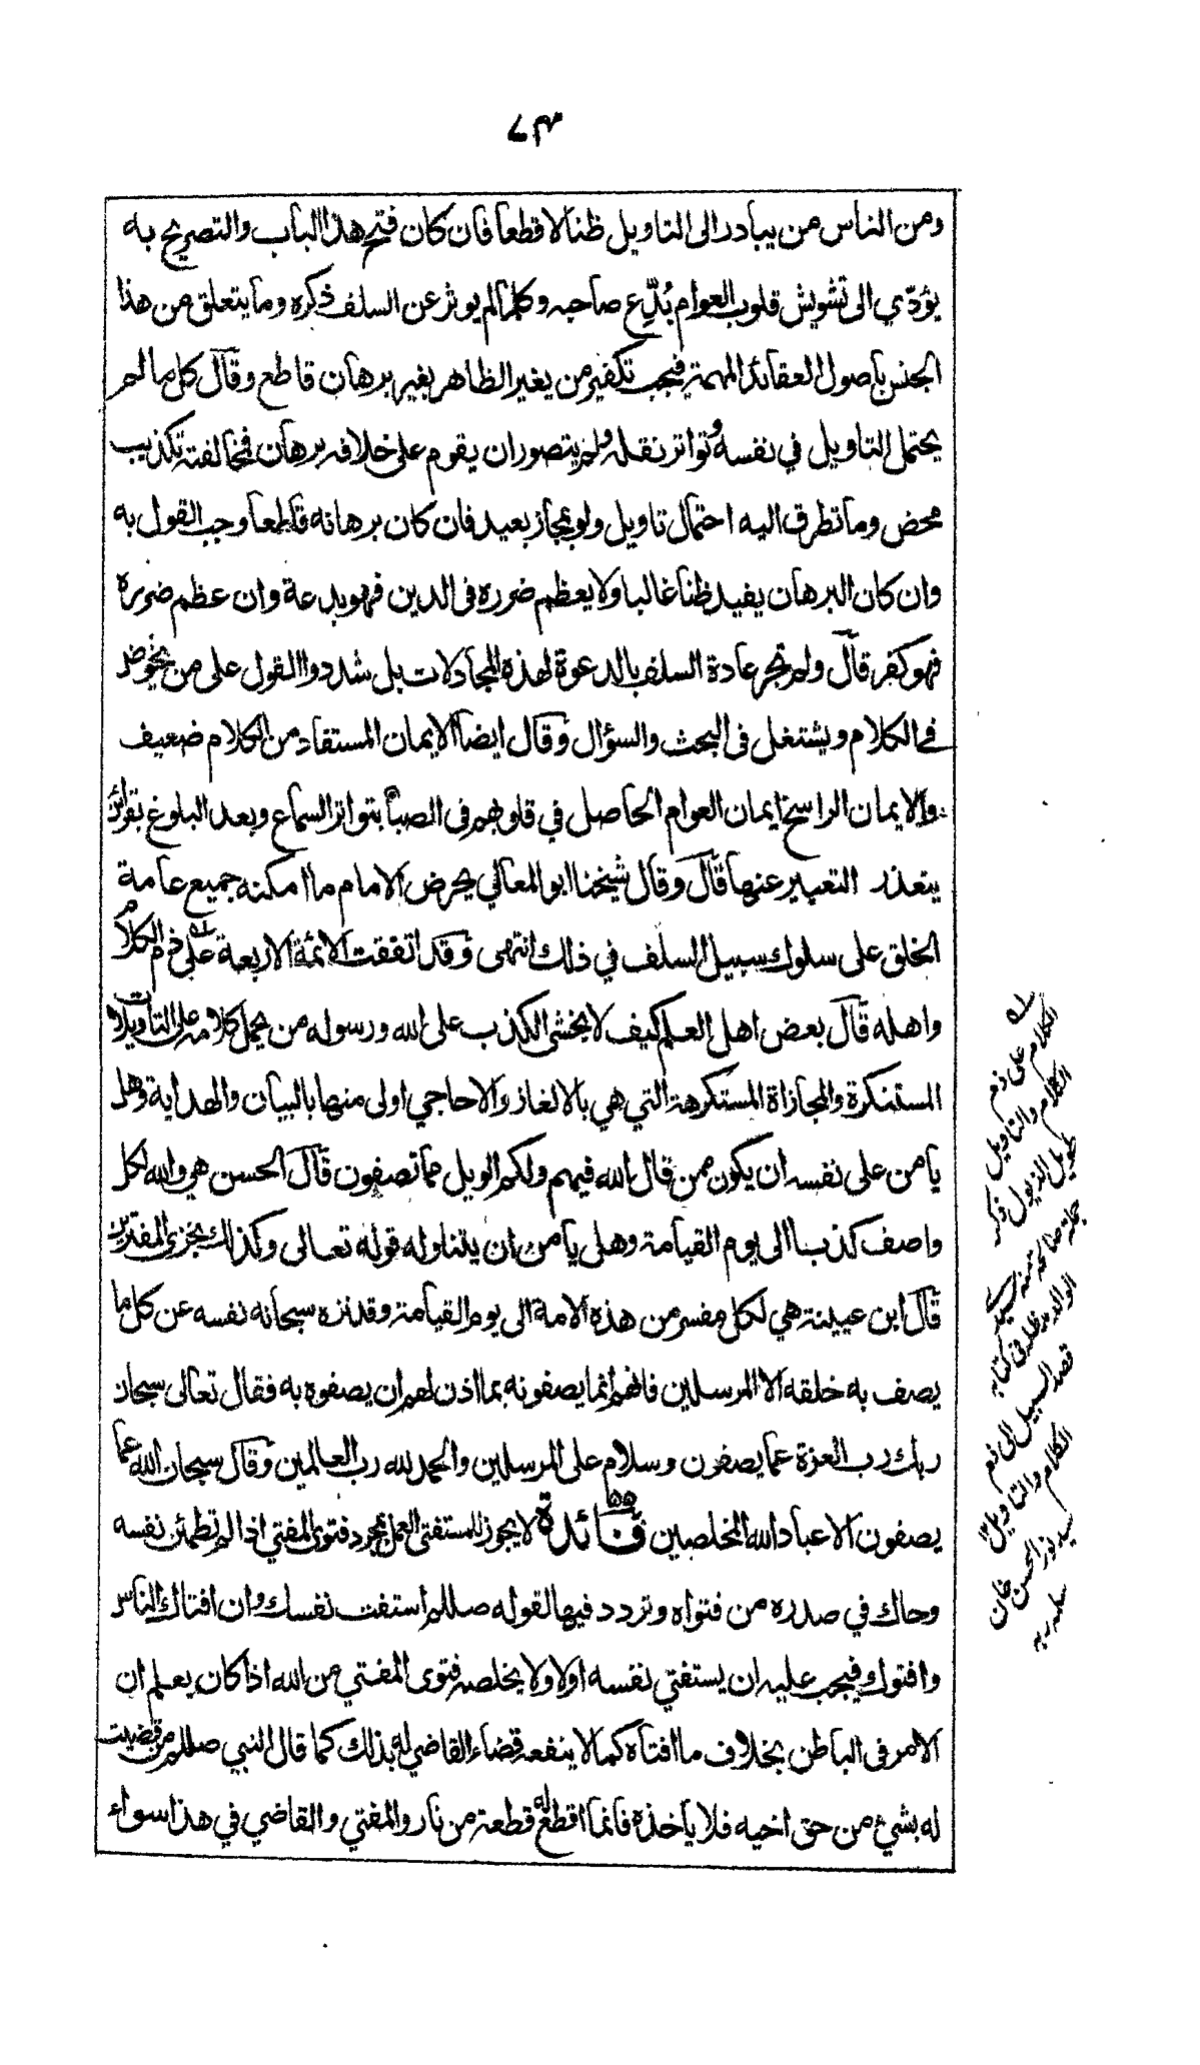 ٧٣
ومن الناس من يبادر الى التاويل ظنا لا قطعا فان كان فتح هذا الباب والتصريح به
يؤدّي الى تشويش قلوب العوام بُدِّع صاحبه وكلما لم يوثر عن السلف ذكره وما يتعلق من هذا
الجنس بأصول العقائد المهمة فيجب تكفير من يغير الظاهر بغير برهان قاطع وقال كل ما لم
يحتمل التاويل في نفسه وتواتر نقله ولم يتصور ان يقوم على خلافه برهان فمخالفته تكذيب
محض وما تطرق اليه احتمال تاويل ولو بمجاز بعيد فان كان برهانه قاطعا وجب القول به
وان كان البرهان يفيد ظنا غالبا ولا يعظم ضرره فى الدين فهو بدعة وان عظم ضرره
فهو كفر قال ولم تجر عادة السلف بالدعوة لهذه المجادلات بل شددوا القول على من يخوض
في الكلام ويشتغل فى البحث والسؤال وقال ايضا الايمان المستفاد من الكلام ضعيف
والايمان الراسخ ايمان العوام الحاصل في قلوبهم فى الصبا بتواتر السماع وبعد البلوغ بقرائن
يتعذر التعبير عنها قال وقال شيخنا ابو المعالي يحرض الامام ما امكنه جميع عامة
الخلق على سلوك سبيل السلف في ذلك انتهى وقد اتفقت الائمة الاربعة على ذم الكلام
واهله قال بعض اهل العلم كيف لا يخشى الكذب على الله ورسوله من يحمل كلامه على التاويلات
المستنكرة والمجازاة المستكرهة التي هي بالالغاز والاحاجي اولى منها بالبيان والهداية وهل
يامن على نفسه ان يكون ممن قال الله فيهم ولكم الويل مما تصفون قال الحسن هي والله لكل
واصف كذب الى يوم القيامة وهل يامن ان يتناوله قوله تعالى وكذلك نجزى المفترين
قال ابن عيينة هي لكل مفسر من هذه الامة الى يوم القيامة وقد نزه سبحانه نفسه عن كل ما
يصف به خلقه الا المرسلين فانهم انما يصفونه بما اذن لهم ان يصفوه به فقال تعالى سبحان
ربك رب العزة عما يصفون وسلام على المرسلين والحمد لله رب العالمين وقال سبحان الله عما
يصفون الا عباد الله المخلصين فائدة لا يجوز للمستفتى العمل بمجرد فتوى المفتي اذا لم تطمئن نفسه
وحاك في صدره من فتواه وتردد فيها لقوله صللم استفت نفسك وان افتاك الناس
وافتوك فيجب عليه ان يستفتي نفسه اولا ولا يخلصه فتوى المفتي من الله اذا كان يعلم ان
الامر فى الباطن بخلاف ما افتاه كما لا ينفعه قضاء القاضي له بذلك كما قال النبي صللم من قضيت
له بشئ من حق اخيه فلا يأخذه فانما اقطع له قطعة من نار والمفتي والقاضي في هذا سواء
الكلام على ذم
الكلام والتاويل
طويل الذيول ذكر
جملة صالحة منه سيدي
الوالد مدظله فى كتابه
قصد السبيل الى ذم
الكلام والتاويل
سيد نور الحسن خان
سلمه ربه